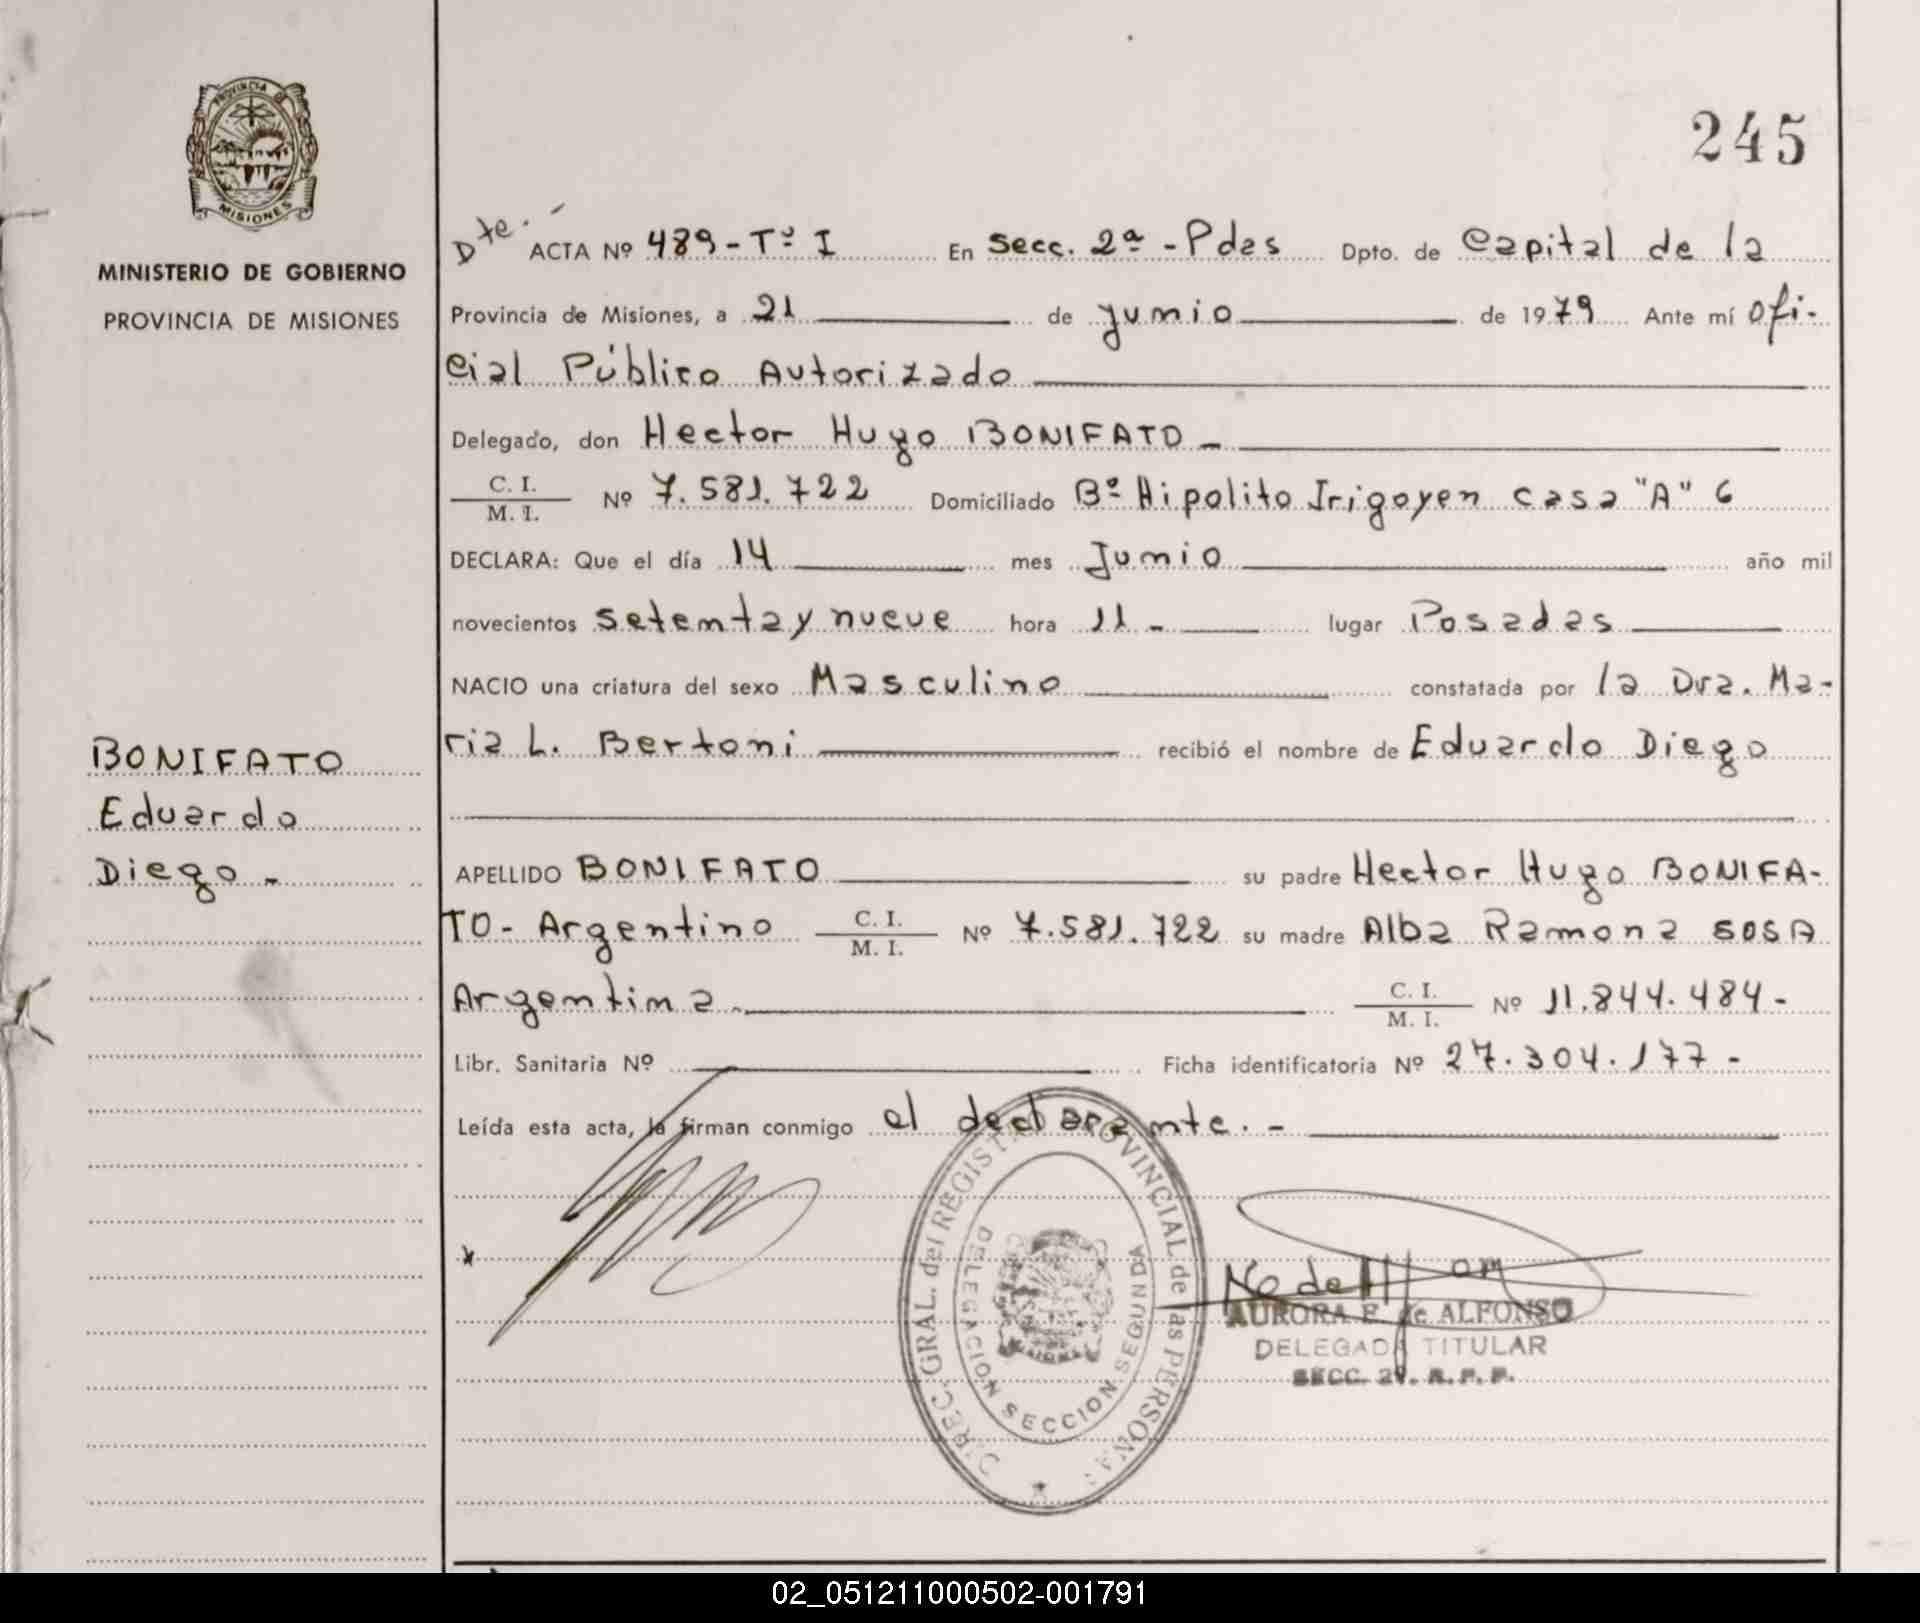 245
PROVINCIA DE
MISIONES
MINISTERIO DE GOBIERNO
PROVINCIA DE MISIONES
Dte. ACTA Nº 489-Tº I En Secc. 2ª-Pdas Dpto. de Capital de la
Provincia de Misiones, a 21 de junio de 1979 Ante mí Ofi-
cial Público Autorizado
Delegado, don Hector Hugo BONIFATO -
C. I.
M. I. Nº 7.581.722 Domiciliado Bº Hipolito Irigoyen casa "A" 6
DECLARA: Que el día 14 mes Junio año mil
novecientos setenta y nueve hora 11- lugar Posadas
NACIO una criatura del sexo Masculino constatada por la Dra. Ma-
ria L. Bertoni recibió el nombre de Eduardo Diego
BONIFATO
Eduardo
Diego -
APELLIDO BONIFATO su padre Hector Hugo BONIFA-
TO- Argentino C. I. M. I. Nº 7.581.722 su madre Alba Ramona SOSA
Argentina.- C. I. M. I. Nº 11.844.484-
Libr. Sanitaria Nº Ficha identificatoria Nº 27.304.177-
Leída esta acta, la firman conmigo el declarante.-
DIREC. GRAL. del REGISTRO PROVINCIAL de las PERSONAS
DELEGACION SECCION SEGUNDA
AURORA E. de ALFONSO
DELEGADA TITULAR
SECC. 2ª. R. P. P.
02_051211000502-001791